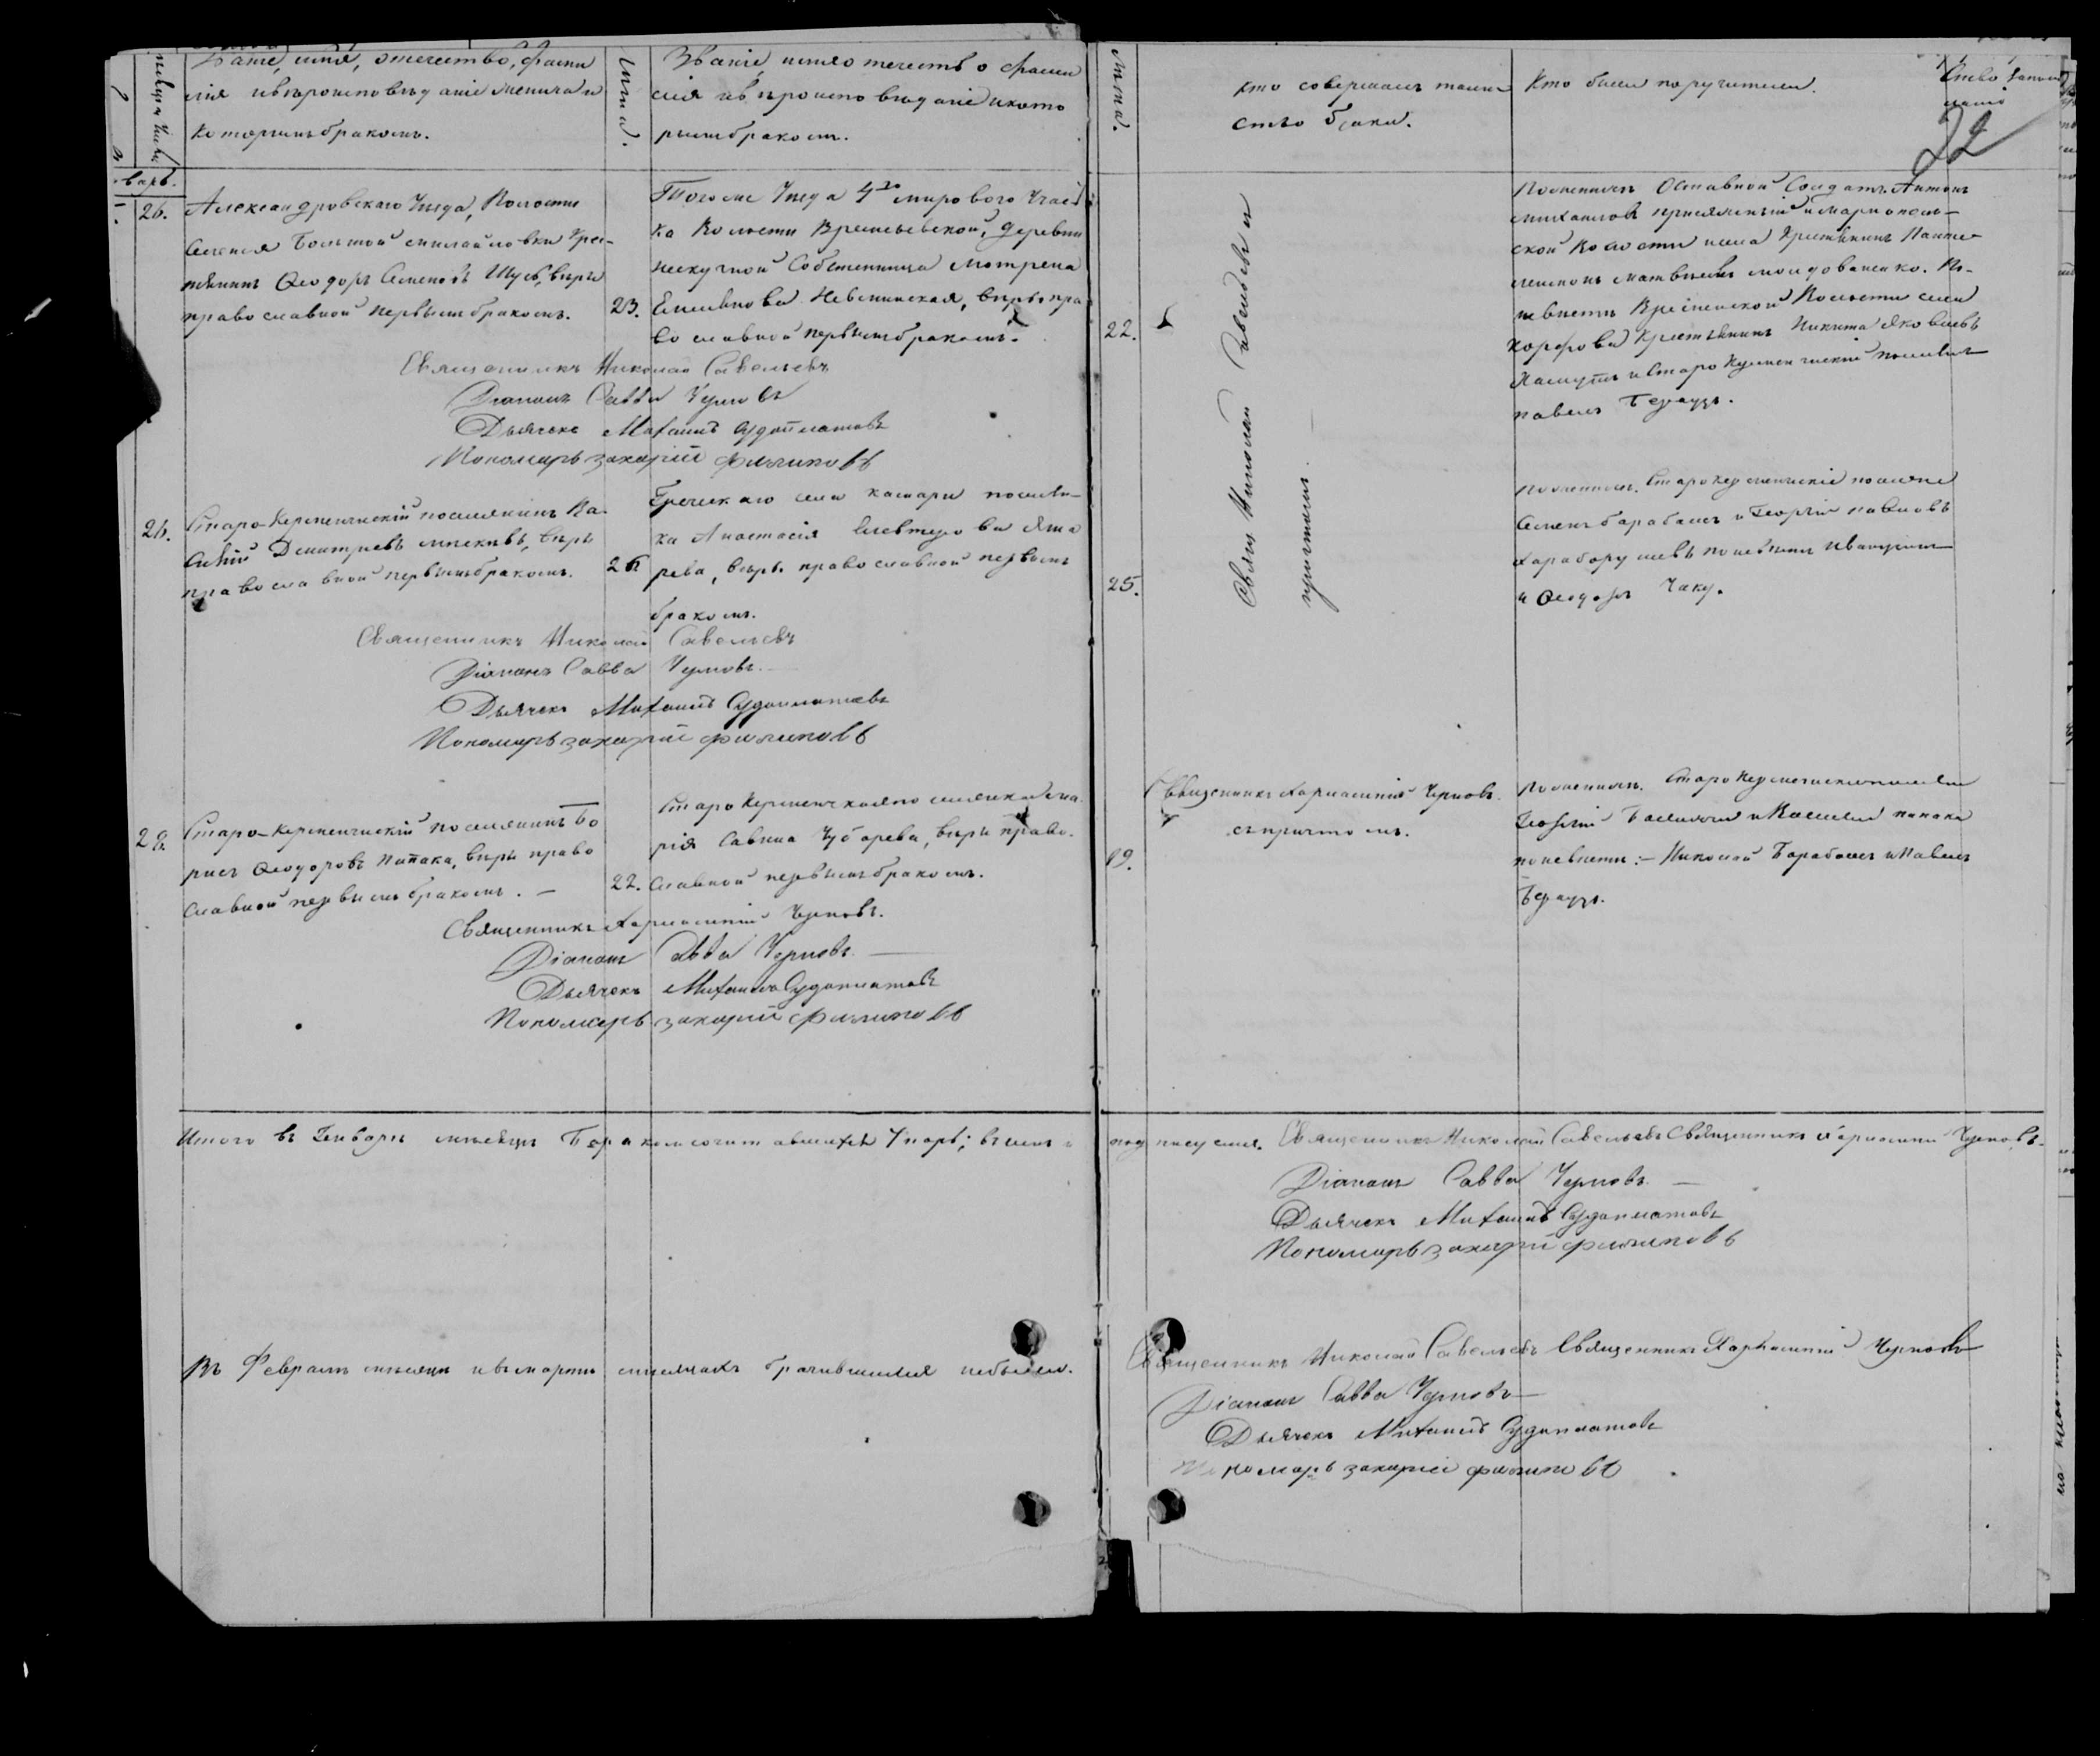 Званіе, имя, отечество, фами
лія и вѣроисповѣданіе жениха и
которымъ бракомъ.
Лѣта.
Званіе имя отечество фами
лія и вѣроисповѣданіе и кото
рымъ бракомъ.
Лѣта.
Кто совершалъ таин
ство брака.
Кто были поручители.
22
варь.
26.
Александровскаго Уѣзда, Волости
Селенія Большой Михайловки Крес-
тянинъ Ѳеодоръ Семеновъ Шусь, вѣры
православной первымъ бракомъ.
23.
Тогоже Уѣзда 4го мирового Учас
ка Волости Времьевской, деревни
Нескучной Собственница Матрена
вѣры пра
вославной первымъ бракомъ.
22.
Священикъ Николай Савельевъ
Діаконъ Савва Черновъ
Дьячекъ Михаилъ
Пономарь Захарій Филиповъ
Священ Николай Савельевъ и
причтомъ.
По женихѣ Отставной Солдатъ Антонъ
Михаиловъ и Мариополь-
ской Волости Крестьянинъ Панте-
леимонъ Матвѣевъ Молдованенко. По
невѣсте Времьевской Волости села
Крестьянинъ Никита Яковлевъ
и Старо Керменчискій поселян
Павелъ
26.
Старо-Керменчискій поселянинъ Ва-
силій Димитріевъ вѣры
православной первымъ бракомъ.
26
Греческаго села Камари поселян-
ка Анастасія Елевтерова
вѣры православной первымъ
бракомъ.
25.
Священникъ Николай Савельевъ
Діаконъ Савва Черновъ.
Дьячекъ Михаилъ
Пономарь Захарій Филиповъ
По женихѣ. Старо Керменчискіе поселяне
Семенъ Барабашъ и Георгій Павловъ
по невѣсте
и Ѳеодоръ Чаку.
28.
Старо-Керменчискій поселянинъ Бо
рисъ Ѳеодоровъ Папака, вѣры право
славной первымъ бракомъ. —
22.
Старо Керменчская поселянка Ма-
рія Савина Чубарева, вѣры право-
славной первымъ бракомъ.
19.
Священникъ Харлампій Черновъ.
Діаконъ Савва Черновъ. —
Дьячекъ Михаилъ
Пономарь Захарій Филиповъ
Священникъ Харлампій Черновъ.
съ причтомъ.
По женихѣ. Старо Керменчискіи поселяни
Георгій и Василій Папака
по невѣсте: — Николай Барабашъ и Павелъ
Итого въ Генварѣ мѣсяцѣ Бракомсочитавшихся 7 паръ; въ чемъ и
подписуемся. Священикъ Николай Савельевъ Священникъ Харлампій Черновъ.
Діаконъ Савва Черновъ. —
Дьячекъ Михаилъ
Пономарь Захарій Филиповъ
Въ Февралѣ мѣсяцѣ и въ мартѣ мѣсяцахъ брачившихся небыло.
Священникъ Николай Савельевъ Священникъ Харлампій Черновъ
Діаконъ Савва Черновъ —
Дьячекъ Михаилъ
Пономарь Захарій Филиповъ